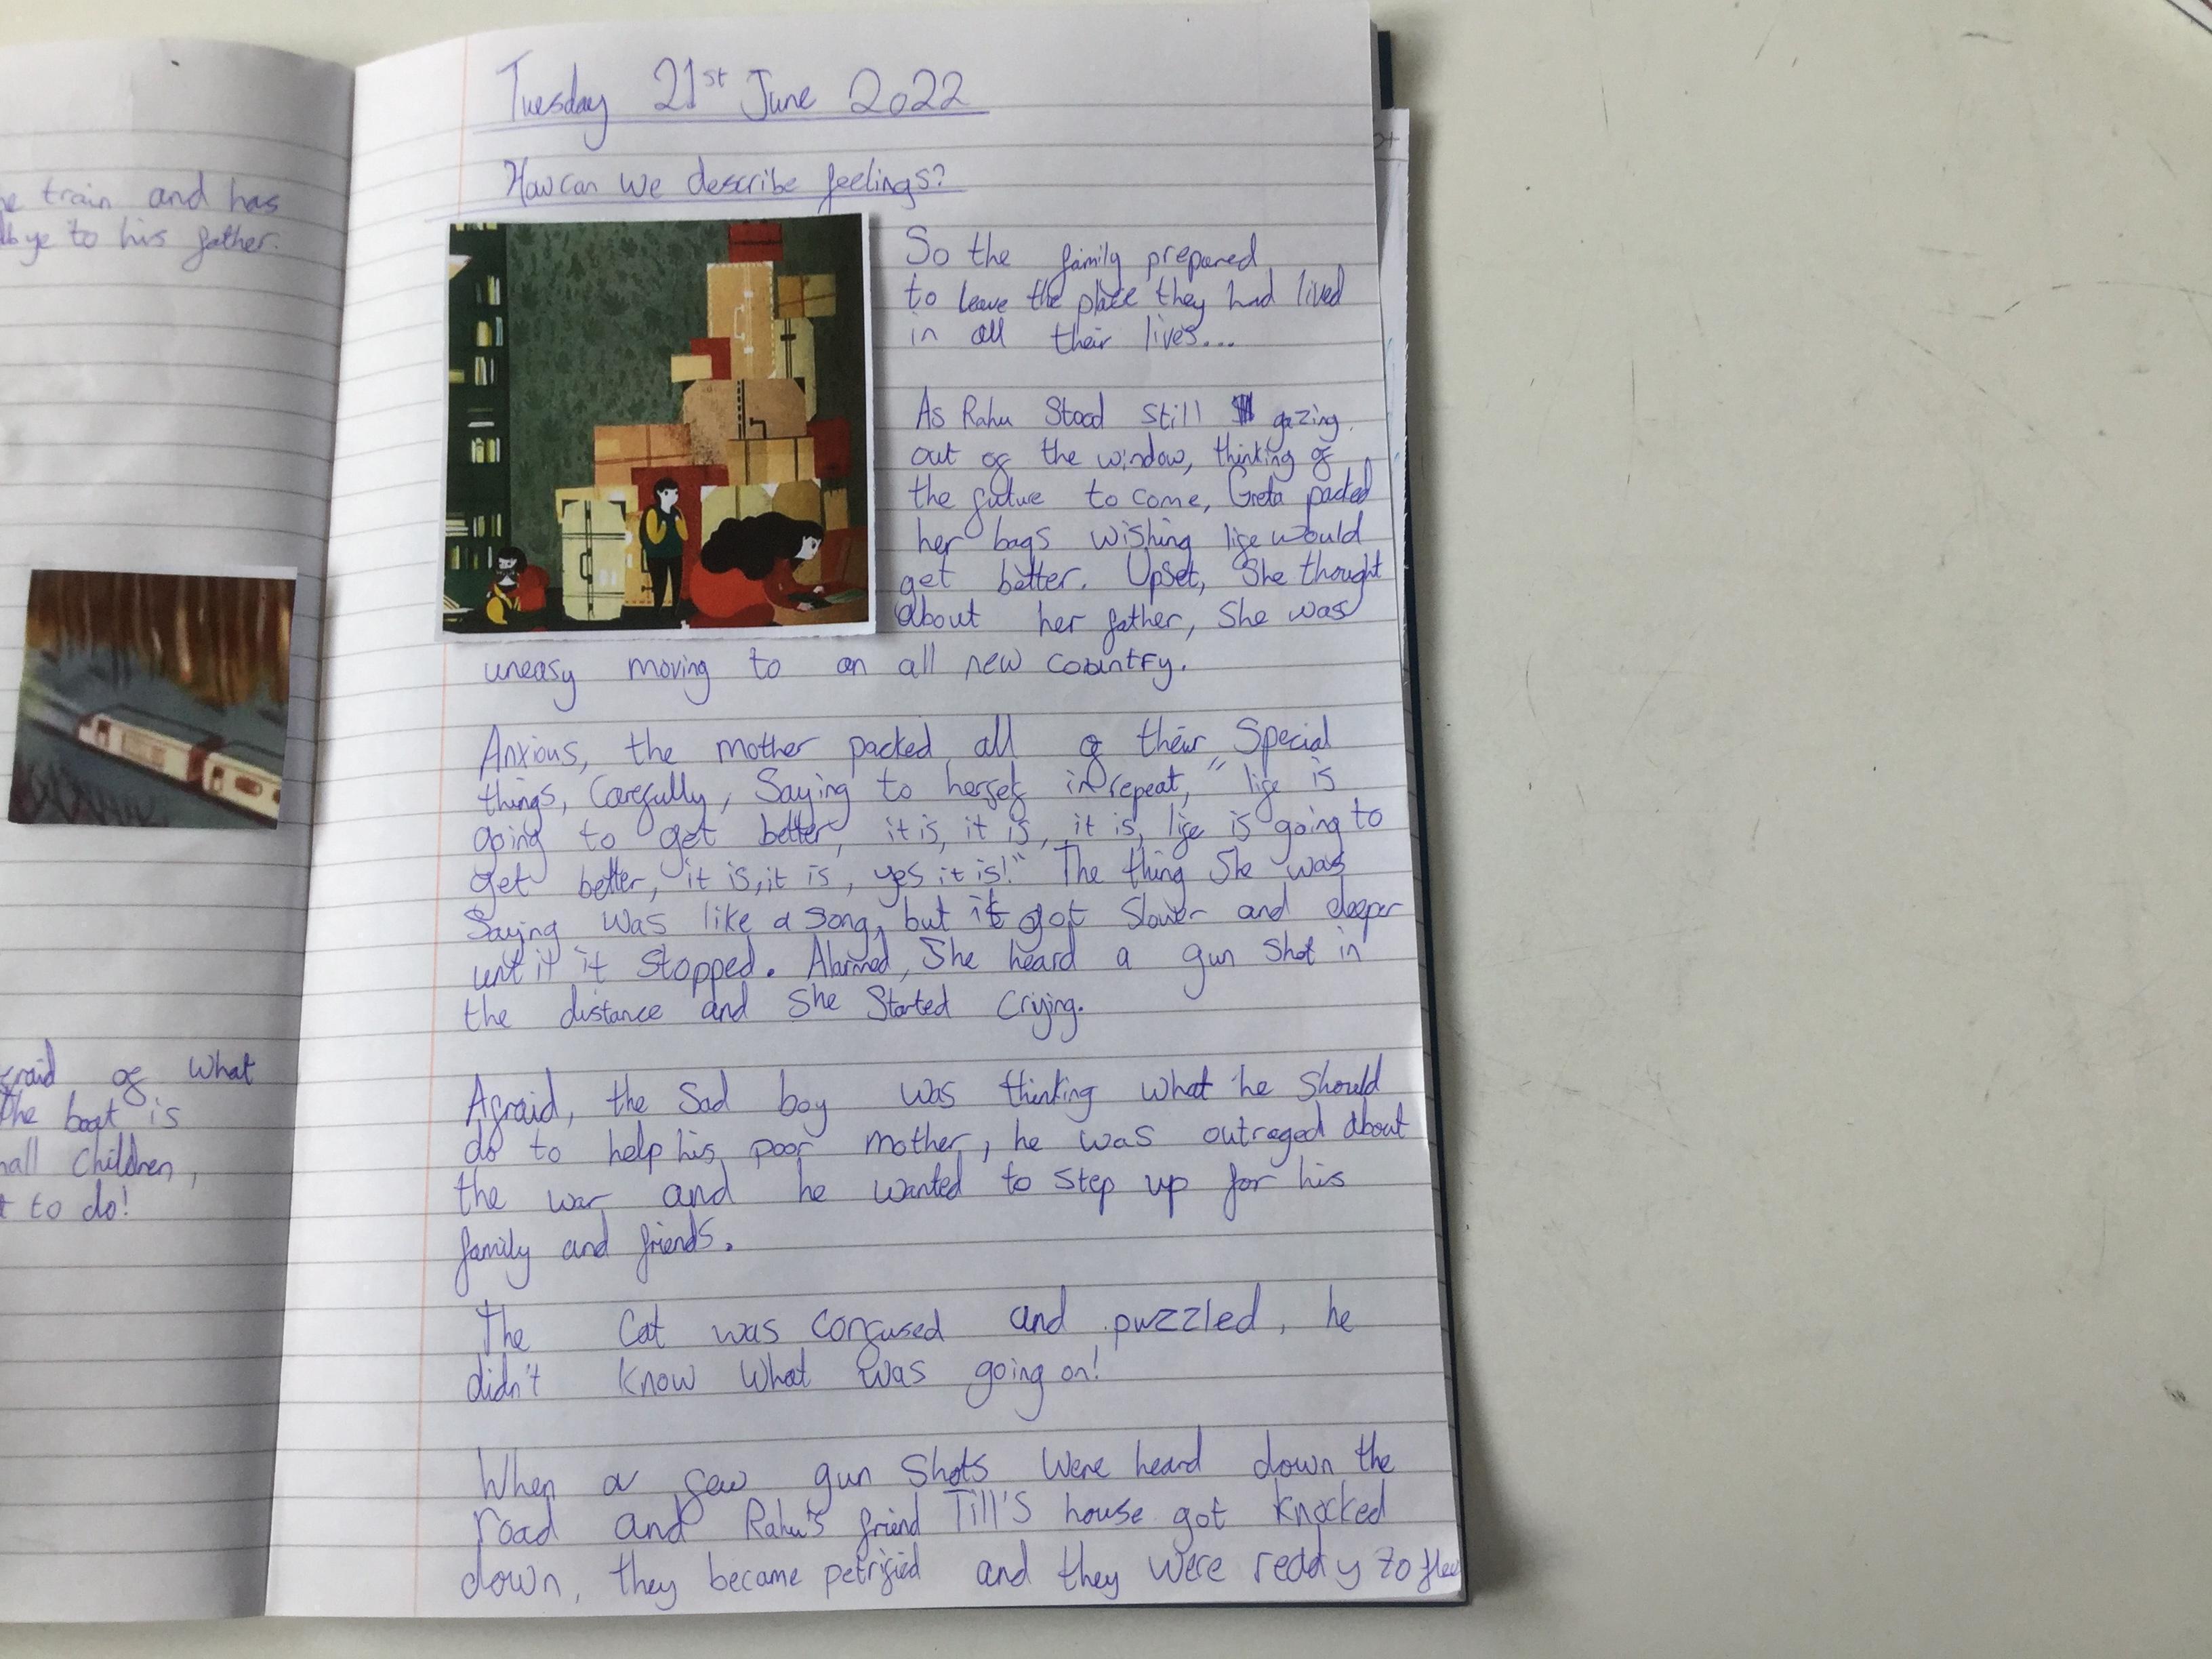 he train and has
bye to his father.
afraid of what
The boat is
small children,
t to do!
Tuesday 21st June 2022
How can we describe feelings?
So the family prepared
to leave the place they had lived
in all their lives...
As Rahu stood still gazing
out of the window, thinking of
the future to come, Greta packed
her bags wishing life would
get better. Upset, She thought
about her father, She was
uneasy moving to an all new country.
Anxious, the mother packed all of their special
things, Carefully, Saying to herself in repeat, "life is
going to get better, it is, it is, it is, life is going to
get better, it is, it is, yes it is!" The thing She was
Saying was like a song, but it got Slower and deeper
until it stopped. Alarmed, She heard a gun shot in
the distance and She Started Crying.
Afraid, the sad boy was thinking what he should
do to help his poor mother, he was outraged about
the war and he wanted to step up for his
family and friends.
The Cat was confused and puzzled, he
didn't know what was going on!
When a few gun shots were heard down the
road and Rahu's friend Till's house got knocked
down, they became petrified and they were ready to flee